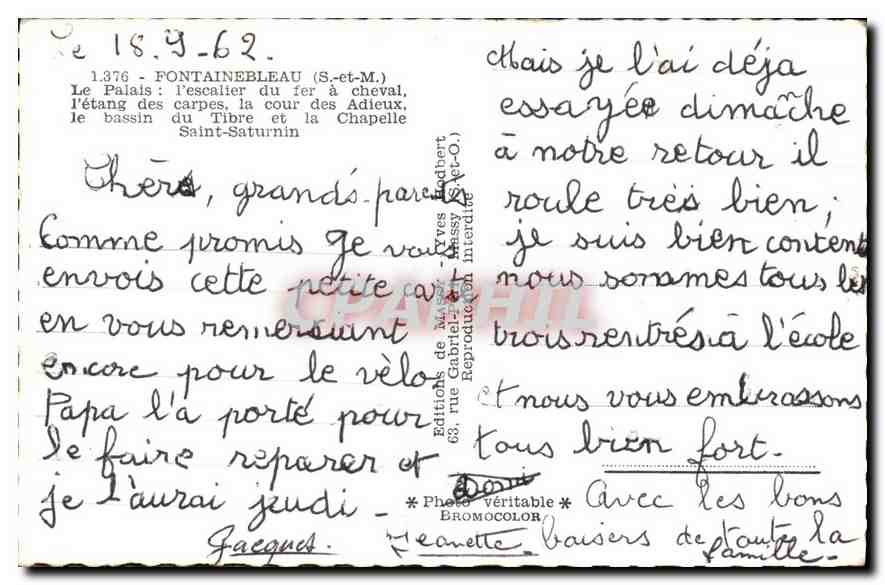 Le 18-9-62.
1.376 - FONTAINEBLEAU (S.-et-M.)
Le Palais : l'escalier du fer à cheval,
l'étang des carpes, la cour des Adieux,
le bassin du Tibre et la Chapelle
Saint-Saturnin
Chers, grands-parents
Comme promis je vous
envois cette petite carte
en vous remerciant
encore pour le vèlo
Papa l'a porté pour
le faire reparer et
je l'aurai jeudi -
Jacques.
Editions de MASSY - Yves Hodbert
63, rue Gabriel-Péri Massy (S.-et-O.)
Reproduction interdite
* Photo véritable *
BROMOCOLOR
CPAPHIL
Mais je l'ai déja
essayée dimanche
à notre retour il
roule très bien ;
je suis bien content
nous sommes tous les
trois rentrés à l'école
et nous vous embrassons
tous bien fort.
Domi
Avec les bons
Jeanette baisers de toute la
famille -